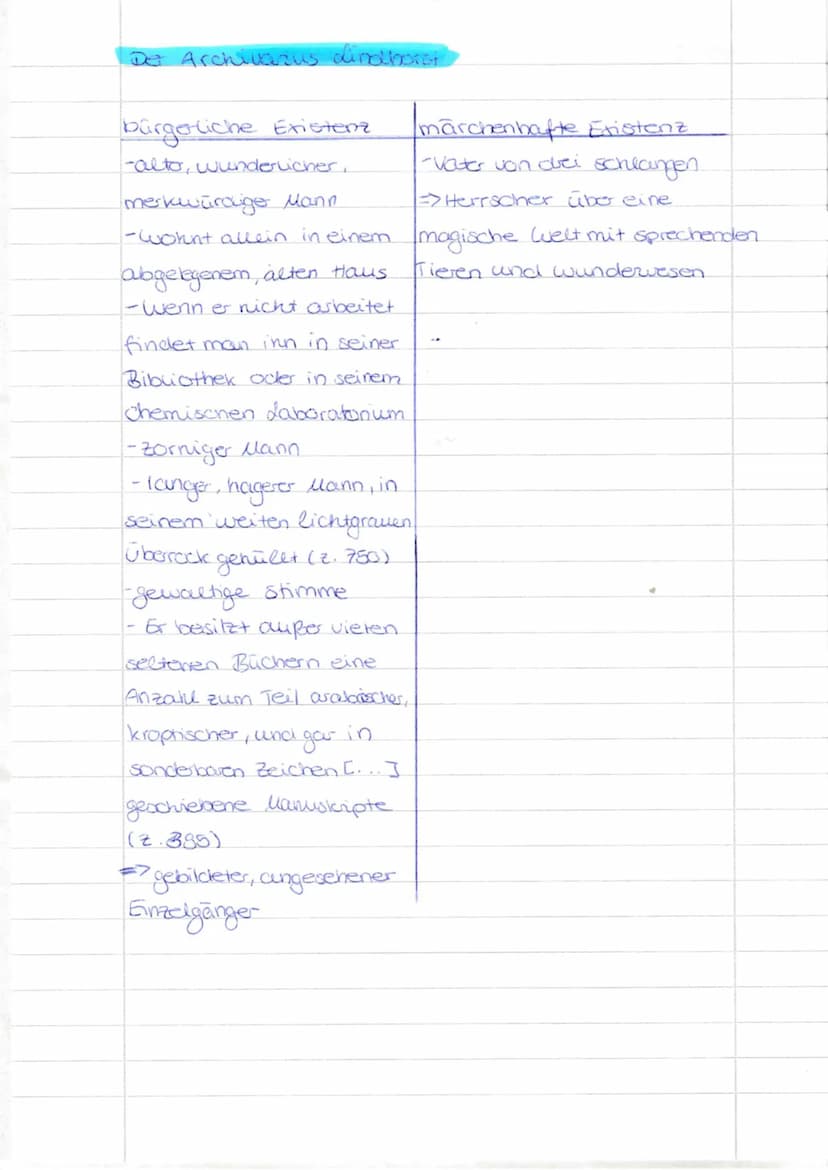 Der Archivarius Lindhorst
bürgerliche Existenz
-alter, wunderlicher,
merkwürdiger Mann
-wohnt allein in einem
abgelegenem, alten Haus
-Wenn er nicht arbeitet
findet man ihn in seiner
Bibliothek oder in seinem
chemischen Laboratorium
-zorniger Mann
-langer, hagerer Mann, in
seinem weiten lichtgrauen
Überrock gehüllt (Z. 750)
-gewaltige Stimme
- Er besitzt außer vielen
seltenen Büchern eine
Anzahl zum Teil arabischer,
kroptischer, und gar in
sonderbaren Zeichen [...]
geschriebene Manuskripte
(Z. 385)
=> gebildeter, angesehener
Einzelgänger
märchenhafte Existenz
-Vater von drei Schlangen
=> Herrscher über eine
magische Welt mit sprechenden
Tieren und Wunderwesen